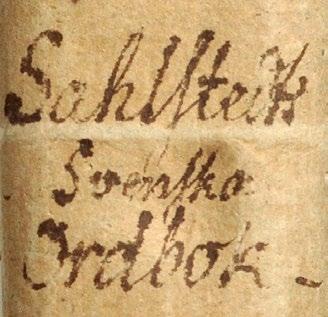 Sahlſtedts
Svenſka
Ordbok